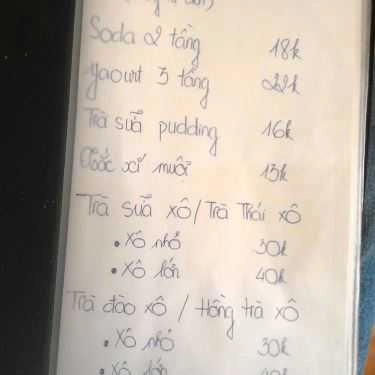 Soda 2 tầng 18k
yaourt 3 tầng 22k
Trà sữa pudding 16k
xí muội 15k
Trà sữa xô / Trà Thái xô
• Xô nhỏ 30k
• Xô lớn 40k
Trà đào xô / Hồng trà xô
• Xô nhỏ 30k
• Xô lớn